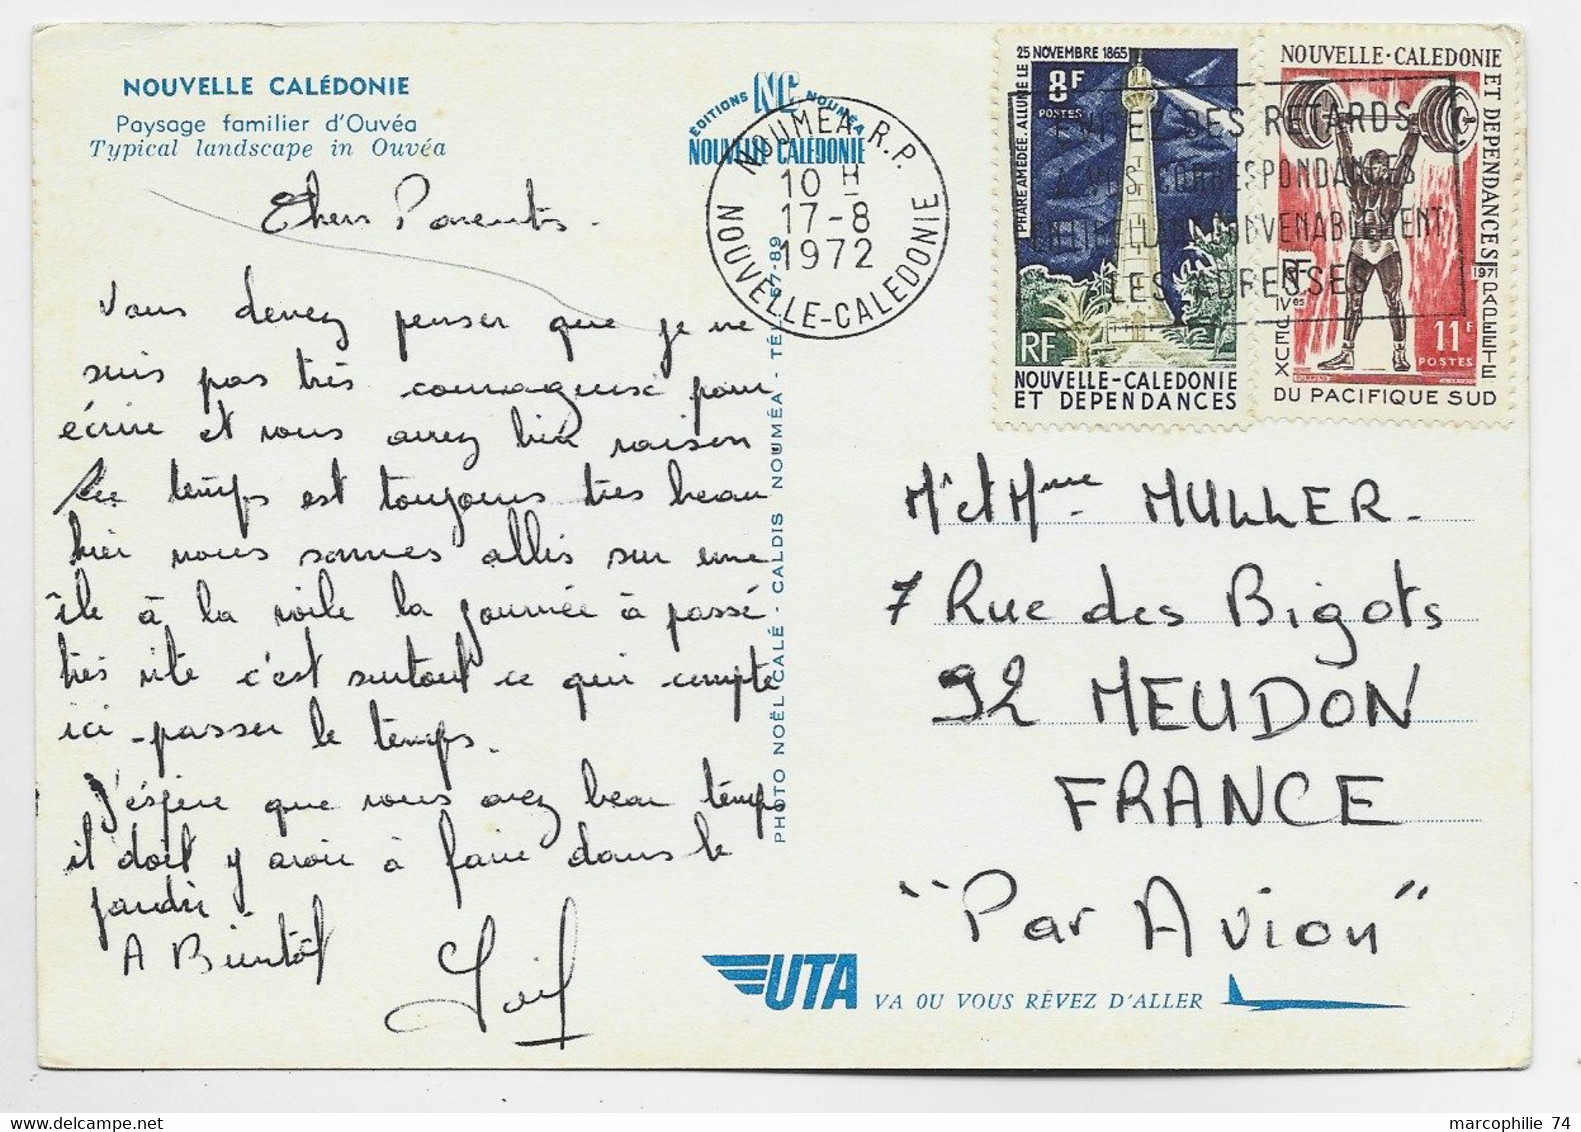 NOUVELLE CALÉDONIE
Paysage familier d'Ouvéa
Typical landscape in Ouvéa
Chers Parents.
Vous devez penser que je ne
suis pas très courageuse pour
écrire et vous avez bien raison
Le temps est toujours très beau
hier nous sommes allés sur une
île à la voile la journée à passé
très vite c'est surtout ce qui compte
ici - passer le temps.
J'éspère que vous avez beau temps
il doit y avoir à faire dans le
jardin
A Bientôt
EDITIONS NC NOUMÉA
NOUVELLE CALÉDONIE
NOUMEA R.P.
10 H
17-8
1972
NOUVELLE-CALEDONIE
PHOTO NOËL CALÉ - CALDIS NOUMÉA - TÉL. 57-89
25 NOVEMBRE 1865
PHARE AMÉDÉE. ALLUMÉ LE
8F
POSTES
RF
NOUVELLE-CALEDONIE
ET DEPENDANCES
NOUVELLE-CALEDONIE
ET DEPENDANCES
1971 PAPEETE
RF
IVes JEUX
11F
POSTES
DU PACIFIQUE SUD
EVITEZ DES RETARDS
A VOS CORRESPONDANCES
CONVENABLEMENT
LES ADRESSES
Mr et Mme MULLER.
7 Rue des Bigots
92 MEUDON
FRANCE
"Par Avion"
UTA VA OU VOUS RÊVEZ D'ALLER
marcophilie 74